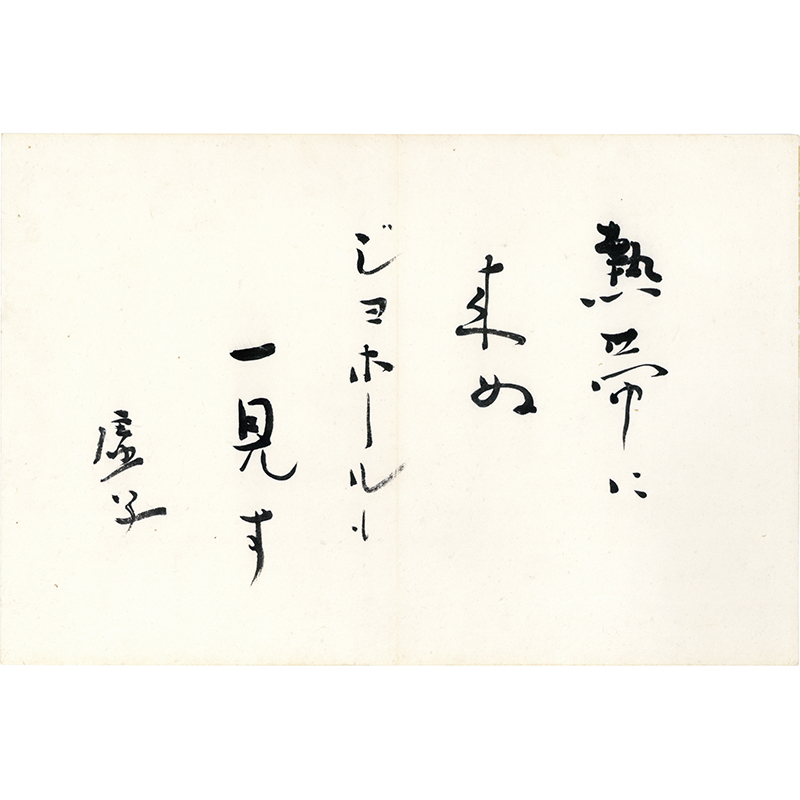 熱帯に
来ぬ
ジヨホール
一見す
虚子